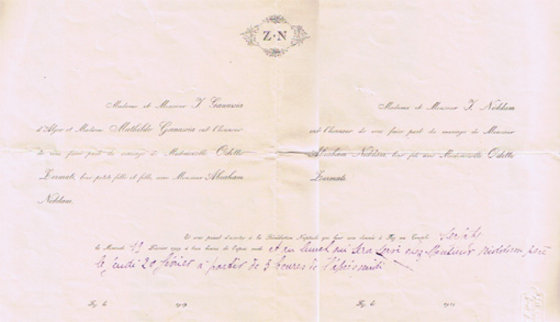 Z·N
Madame et Monsieur J. Ganassia
d'Alger et Madame Mathilde Ganassia ont l'honneur
de vous faire part du mariage de Mademoiselle Odette
Zermati, leur petite fille et fille, avec Monsieur Abraham
Neddam.
Madame et Monsieur J. Neddam
ont l'honneur de vous faire part du mariage de Monsieur
Abraham Neddam, leur fils avec Mademoiselle Odette
Zermati.
Et vous prient d'assister à la Bénédiction Nuptiale qui leur sera donnée à au Temple
le Mercredi 19 Février 1919 à heures de l'après midi et au lunch qui sera servi chez Monsieur Neddam père
le jeudi 20 février à partir de 3 heures de l'après midi
le 1919
le